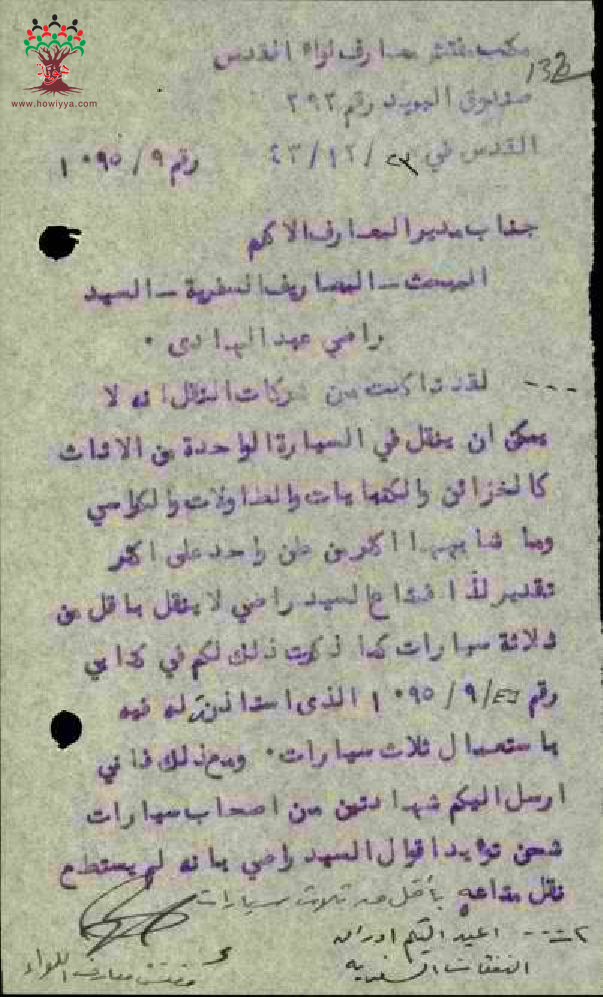 www.howiyya.com
مكتب مفتش معارف لواء القدس
132
صندوق البريد رقم ٢٩٢
القدس في ٢٣/١٢/٤٣ رقم ٩/١٠٩٥
جناب مدير المعارف الاكرم
المبحث - المصاريف السفرية - السيد
راضي عبد الهادى ٠
--- لقد تاكدت من شركات النقل انه لا
يمكن ان ينقل في السيارة الواحدة من الاثاث
كالخزائن والكنبايات والطاولات والكراسي
وما شابهها اكثر من طن واحد على اكثر
تقدير لذا فمتاع السيد راضي لا ينقل باقل من
ثلاثة سيارات كما ذكرت ذلك لكم في كتابي
رقم ١٠٩٥/٩/٤٦ الذى استاذنت له فيه
باستعمال ثلاث سيارات ٠ ومع ذلك فاني
ارسل اليكم شهادتين من اصحاب سيارات
شحن تؤيد اقوال السيد راضي بانه لم يستطع
نقل متاعه بأقل من ثلاث سيارات
٢--- اعيد اليكم اوراق
النفقات السفرية
مفتش معارف اللواء